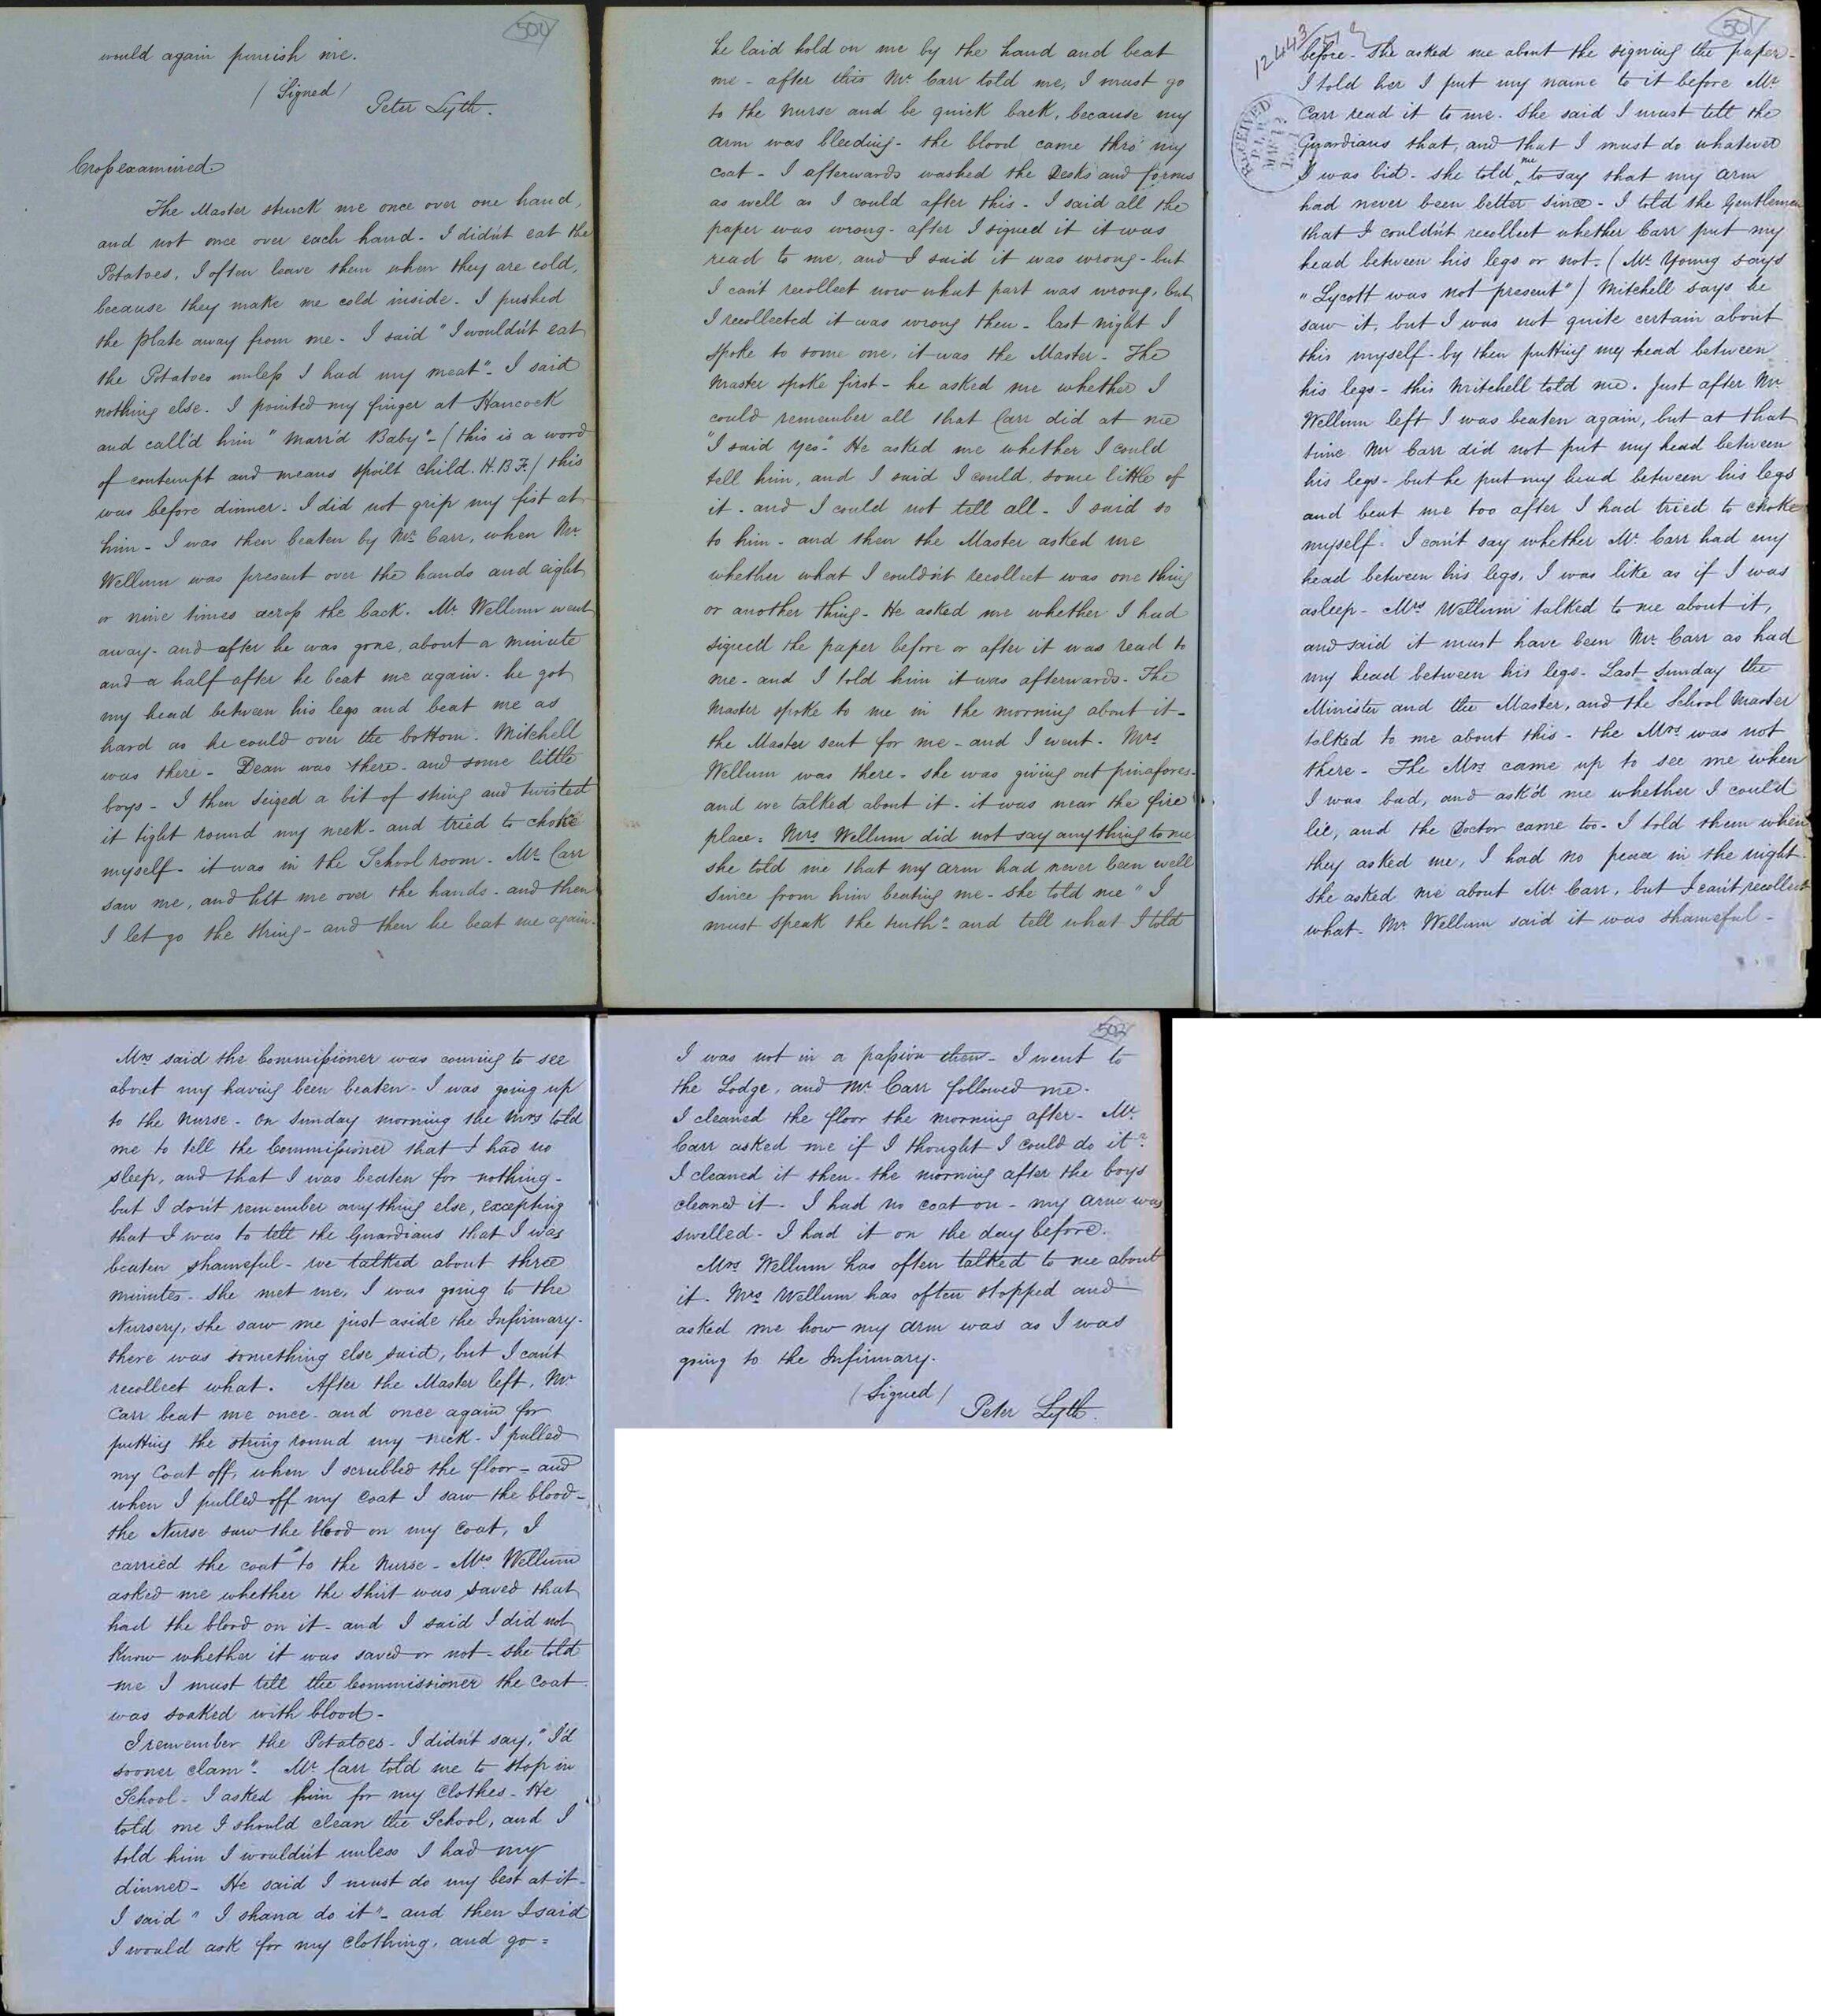 500
would again punish me.
(Signed)
Peter Lyth.
Crossexamined.
The Master struck me once over one hand,
and not once over each hand. I didn't eat the
Potatoes, I often leave them when they are cold,
because they make me cold inside. I pushed
the plate away from me. I said "I wouldn't eat
the Potatoes unless I had my meat". I said
nothing else. I pointed my finger at Hancock
and call'd him "Marr'd Baby" - (this is a word
of contempt and means spoilt child. H.B.F.) this
was before dinner. I did not grip my fist at
him - I was then beaten by Mr. Carr, when Mr.
Wellum was present over the hands and eight
or nine times across the back. Mr Wellum went
away - and after he was gone, about a minute
and a half after he beat me again. he got
my head between his legs and beat me as
hard as he could over the bottom. Mitchell
was there - Dean was there - and some little
boys - I then seized a bit of string and twisted
it tight round my neck - and tried to choke
myself - it was in the School room. Mr. Carr
saw me, and hit me over the hands - and then
I let go the string - and then he beat me again.
he laid hold on me by the hand and beat
me - after this Mr Carr told me, I must go
to the Nurse and be quick back, because my
arm was bleeding - the blood came thro' my
coat - I afterwards washed the Desks and forms
as well as I could after this - I said all the
paper was wrong - after I signed it it was
read to me, and I said it was wrong - but
I can't recollect now what part was wrong, but
I recollected it was wrong then - last night I
spoke to some one, it was the Master - The
Master spoke first - he asked me whether I
could remember all that Carr did at me
"I said yes". He asked me whether I could
tell him, and I said I could, some little of
it - and I could not tell all - I said so
to him - and then the Master asked me
whether what I couldn't recollect was one thing
or another thing - He asked me whether I had
signed the paper before or after it was read to
me - and I told him it was afterwards - The
Master spoke to me in the morning about it -
the Master sent for me - and I went. Mrs
Wellum was there - she was giving out pinafores -
and we talked about it - it was near the fire
place = Mrs Wellum did not say anything to me
she told me that my arm had never been well
since from him beating me - she told me "I
must speak the truth" - and tell what I told
501
12443/51
RECEIVED
before - She asked me about the signing the paper -
I told her I put my name to it before Mr
Carr read it to me. She said I must tell the
Guardians that, and that I must do whatever
I was bid - she told me to say that my arm
had never been better since - I told the Gentlemen
that I couldn't recollect whether Carr put my
head between his legs or not. (Mr Young says
"Lycott was not present") Mitchell says he
saw it, but I was not quite certain about
this myself - by then putting my head between
his legs - this Mitchell told me. Just after Mr
Wellum left I was beaten again, but at that
time Mr Carr did not put my head between
his legs - but he put my head between his legs
and beat me too after I had tried to choke
myself. I can't say whether Mr Carr had my
head between his legs, I was like as if I was
asleep - Mrs Wellum talked to me about it,
and said it must have been Mr. Carr as had
my head between his legs - Last Sunday the
Minister and the Master, and the School Master
talked to me about this - the Mrs was not
there - The Mrs came up to see me when
I was bad, and ask'd me whether I could
lie, and the Doctor came too - I told them when
they asked me, I had no peace in the night -
She asked me about Mr Carr, but I can't recollect
what - Mr Wellum said it was shameful -
Mrs said the Commissioner was coming to see
about my having been beaten - I was going up
to the Nurse - on Sunday morning the Mrs told
me to tell the Commissioner that I had no
sleep, and that I was beaten for nothing -
but I don't remember anything else, excepting
that I was to tell the Guardians that I was
beaten shameful - we talked about three
minutes - She met me, I was going to the
Nursery, she saw me just aside the Infirmary -
there was something else said, but I can't
recollect what. After the Master left, Mr
Carr beat me once - and once again for
putting the string round my neck - I pulled
my Coat off, when I scrubbed the floor - and
when I pulled off my Coat I saw the blood -
the Nurse saw the blood on my Coat, I
carried the coat to the Nurse - Mrs Wellum
asked me whether the shirt was saved that
had the blood on it - and I said I did not
know whether it was saved or not - she told
me I must tell the Commissioner the Coat
was soaked with blood -
I remember the Potatoes - I didn't say, "I'd
sooner clam". Mr Carr told me to stop in
School - I asked him for my Clothes - He
told me I should clean the School, and I
told him I wouldn't unless I had my
dinner - He said I must do my best at it -
I said "I shana do it" - and then I said
I would ask for my clothing, and go =
502
I was not in a passion then - I went to
the Lodge, and Mr Carr followed me.
I cleaned the floor the morning after - Mr.
Carr asked me if I thought I could do it?
I cleaned it then - the morning after the boys
cleaned it - I had no coat on - my arm was
swelled - I had it on the day before.
Mrs Wellum has often talked to me about
it. Mrs Wellum has often stopped and
asked me how my arm was as I was
going to the Infirmary.
(Signed)
Peter Lyth.